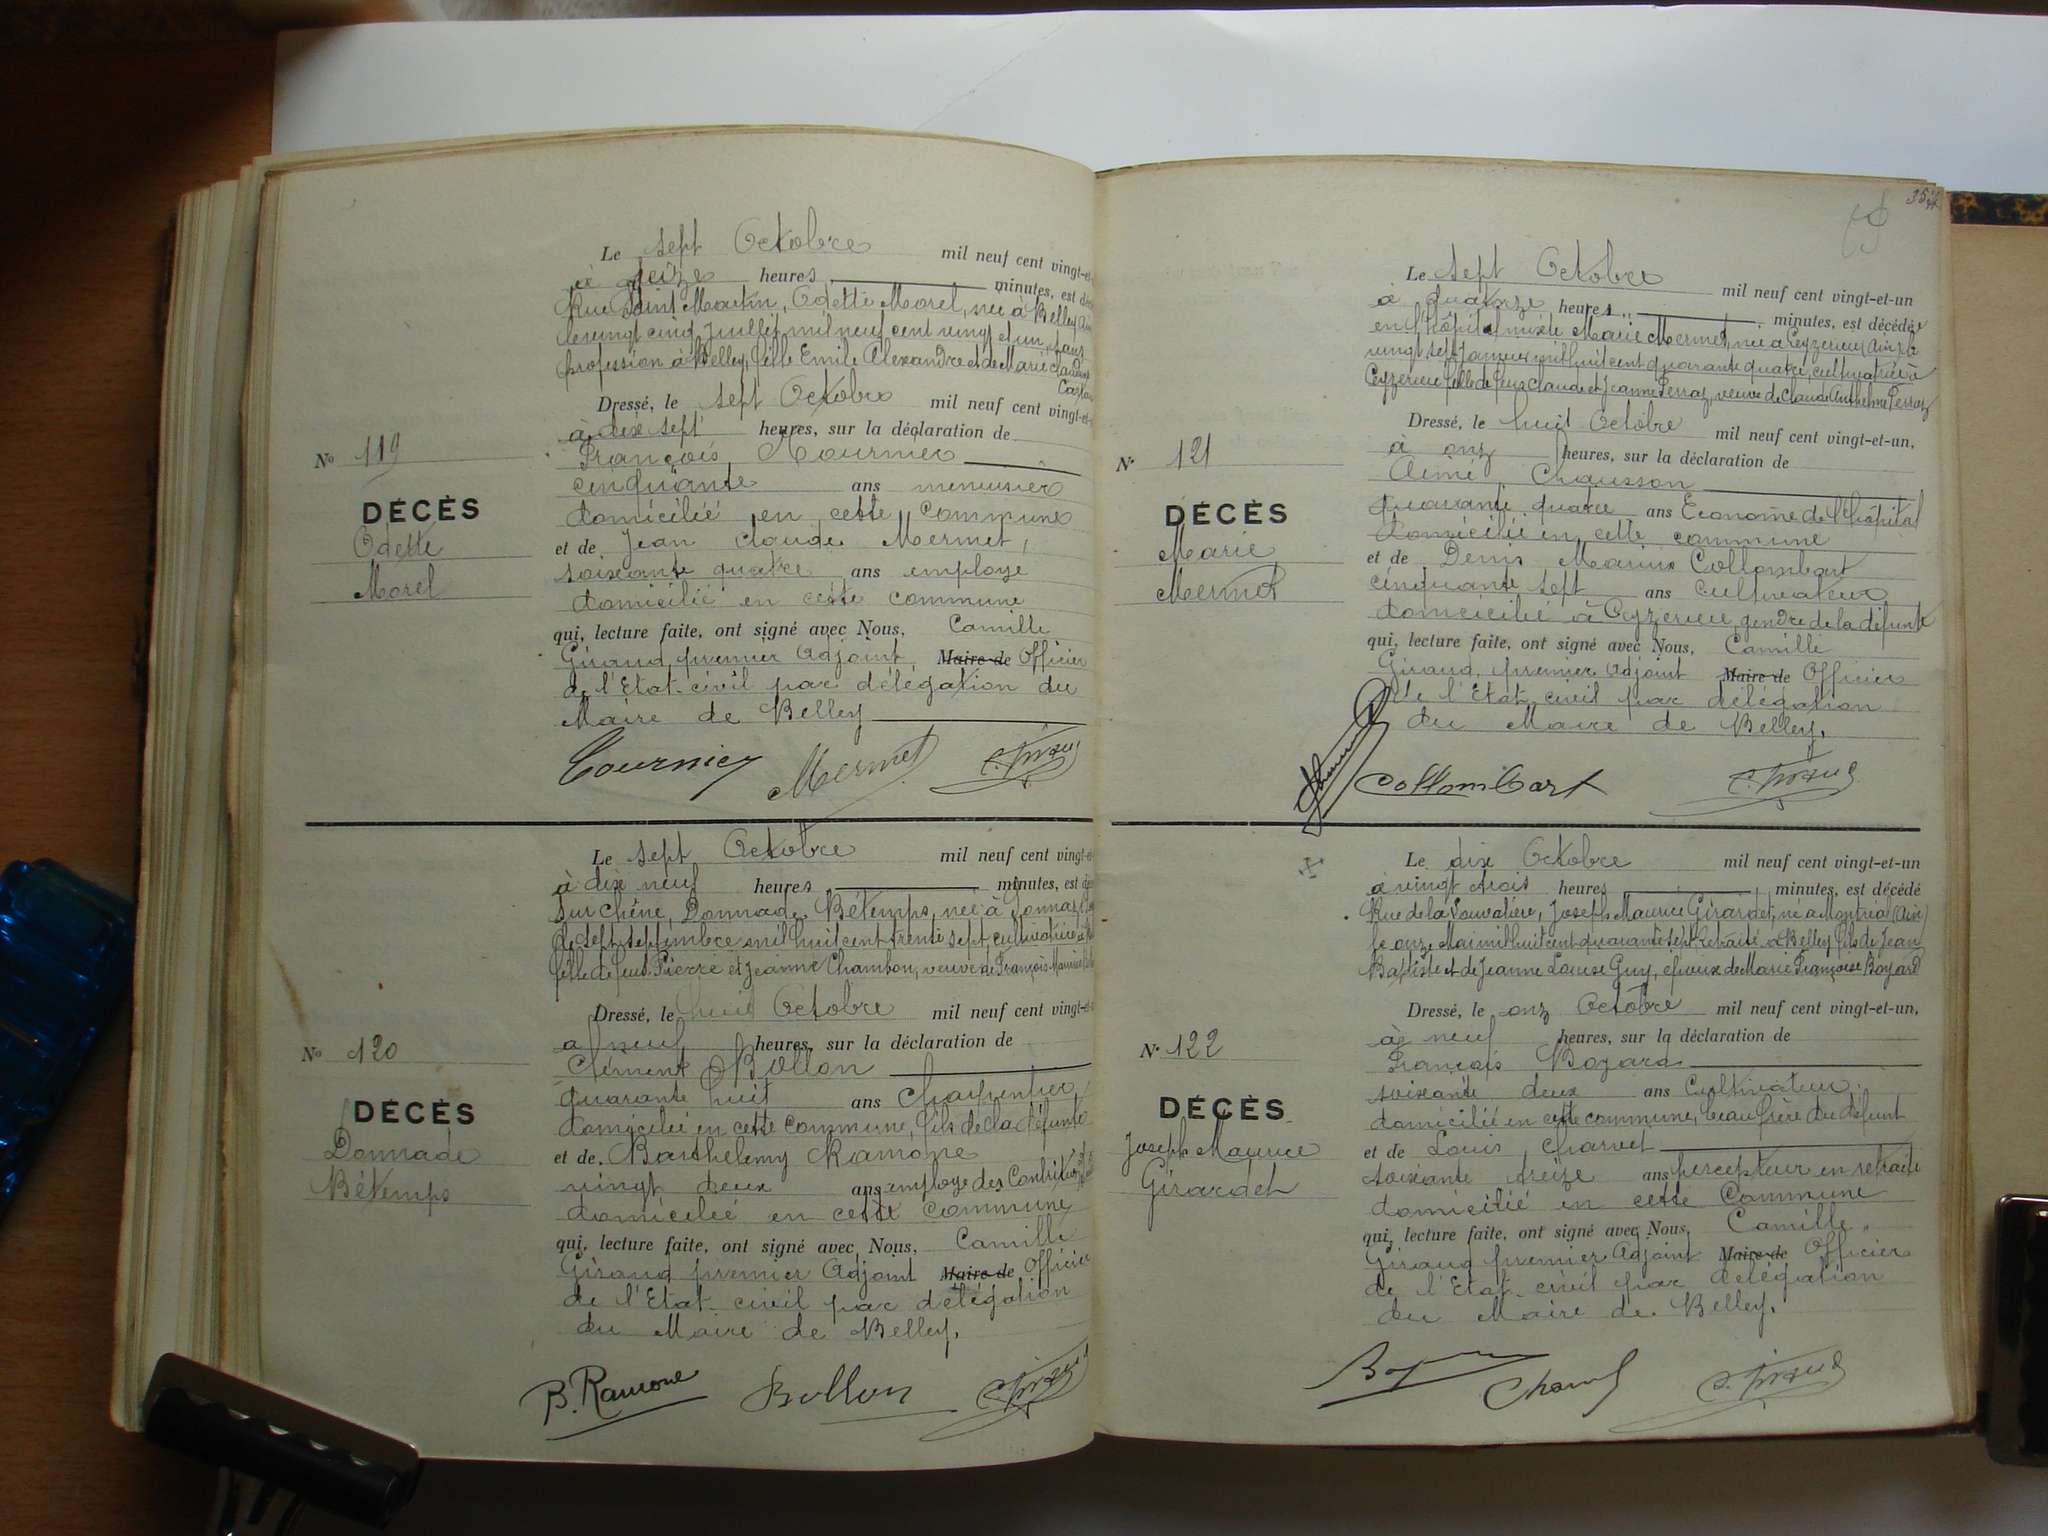 Le sept Octobre mil neuf cent vingt-et
à seize heures minutes, est
Rue Saint Martin, Odette Morel, née à Belley Ain
le vingt cinq Juillet mil neuf cent vingt et un, sans
profession à Belley, fille Emile Alexandre et de Marie
Dressé, le sept Octobre mil neuf cent vingt-et
à dix sept heures, sur la déclaration de
N° 119
François Tournier
DÉCÈS
cinquante ans menuisier
domicilié en cette commune
Odette
et de Jean Claude Mermet,
Morel
soixante quatre ans employé
domicilié en cette commune
qui, lecture faite, ont signé avec Nous, Camille
Giraud, premier Adjoint, Maire de Officier
de l'Etat-civil par délégation du
Maire de Belley
Tournier Mermet C. Giraud
Le sept Octobre mil neuf cent vingt-et
à dix neuf heures minutes, est
Sur Chêne, Donnade Bétemps, née à
le sept Septembre mil huit cent trente sept, cultivatrice
fille de feus Pierre et Jeanne Chambon, veuve de François Maurice
Dressé, le huit Octobre mil neuf cent vingt-et
N° 120
a neuf heures, sur la déclaration de
Clément Bollon
DÉCÈS
quarante huit ans Charpentier,
domicilié en cette commune, fils de la défunte
Donnade
et de Barthélemy Ramone
Bétemps
vingt deux ans employé des
domicilié en cette commune
qui, lecture faite, ont signé avec Nous, Camille
Giraud premier Adjoint Maire de Officier
de l'Etat-civil par délégation
du Maire de Belley.
B. Ramone Bollon C. Giraud
35
Le sept Octobre mil neuf cent vingt-et-un
à quatorze heures minutes, est décédée
en l'hôpital mixte Marie Mermet, née à Ceyzerieu Ain, le
vingt sept Janvier mil huit cent quarante quatre, cultivatrice à
Ceyzerieu fille de feus Claude et Jeanne Perraz, veuve de Claude Anthelme Perraz
Dressé, le huit Octobre mil neuf cent vingt-et-un,
à onz heures, sur la déclaration de
N° 121
Aimé Chausson
DÉCÈS
quarante quatre ans Econome de l'hôpital
domicilié en cette commune
Marie
et de Denis Marius Collombart
Mermet
cinquante sept ans cultivateur
domicilié à Ceyzerieu, gendre de la défunte
qui, lecture faite, ont signé avec Nous, Camille
Giraud, premier Adjoint Maire de Officier
de l'Etat-civil par délégation
du Maire de Belley.
Collombart C. Giraud
Le dix Octobre mil neuf cent vingt-et-un
à vingt trois heures minutes, est décédé
Rue de la Joseph Maurice Girardet, né à Montréal (Ain)
le onze Mai mil huit cent quarante sept retraité à Belley fils de Jean
Baptiste et de Jeanne Louise Guy, époux de Marie Françoise Bozard
Dressé, le onz Octobre mil neuf cent vingt-et-un,
N° 122
à neuf heures, sur la déclaration de
François Bozard
DÉCÈS
soixante deux ans Cultivateur
domicilié en cette commune, beau frère du défunt
Joseph Maurice
et de Louis Charvet
Girardet
soixante treize ans percepteur en retraite
domicilié en cette commune
qui, lecture faite, ont signé avec Nous, Camille
Giraud premier Adjoint Maire de Officier
de l'Etat-civil par délégation
du Maire de Belley.
C. Giraud